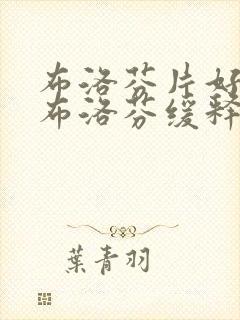 布洛芬片好
布洛芬缓释
葉青羽